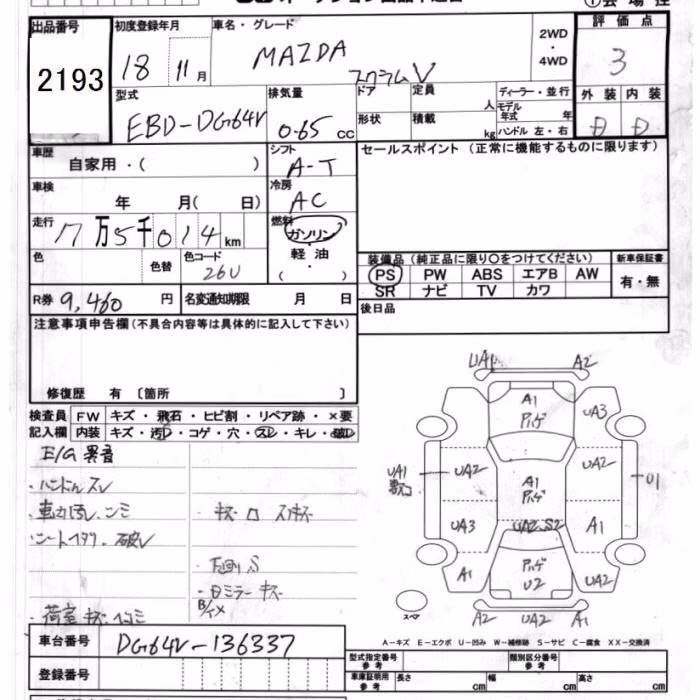 ① 会場控
出品番号 2193
初度登録年月 18 11月
車名・グレード MAZDA スクラムV
2WD・4WD
評価点 3
型式 EBD-DG64V
排気量 0.65 cc
ドア 形状
定員 人
積載 kg
ディーラー・並行
モデル年式 年
ハンドル 左・右
外装 内装
D D
車歴 自家用・( )
シフト A-T
セールスポイント(正常に機能するものに限ります)
車検 年 月( 日)
冷房 AC
走行 7万5千014km
燃料 ガソリン・軽油・( )
色 色替 色コード 26U
装備品(純正品に限り○をつけてください)
新車保証書 有・無
PS PW ABS エアB AW
SR ナビ TV カワ
R券 9,460円
名変通知期限 月 日
後日品
注意事項申告欄(不具合内容等は具体的に記入して下さい)
修復歴 有 〔箇所 〕
検査員記入欄
FW キズ・飛石・ヒビ割・リペア跡・×要
内装 キズ・汚レ・コゲ・穴・スレ・キレ・破レ
E/G 異音
・ハンドル スレ
・シートヘタリ. 破レ
・下廻り S
・荷室 キズ ヘコミ
UA1 A2
A1
UA3
UA1
UA2
A1
UA2
U1
UA3
UA2.S2
A1
A1
U2
UA2
スペア
A2 UA2 A1
A-キズ E-エクボ U-凹み W-補修跡 S-サビ C-腐食 XX-交換済
車台番号 DG64V-136337
登録番号
型式指定番号 参考
類別区分番号 参考
車庫証明用 参考
長さ cm
幅 cm
高さ cm